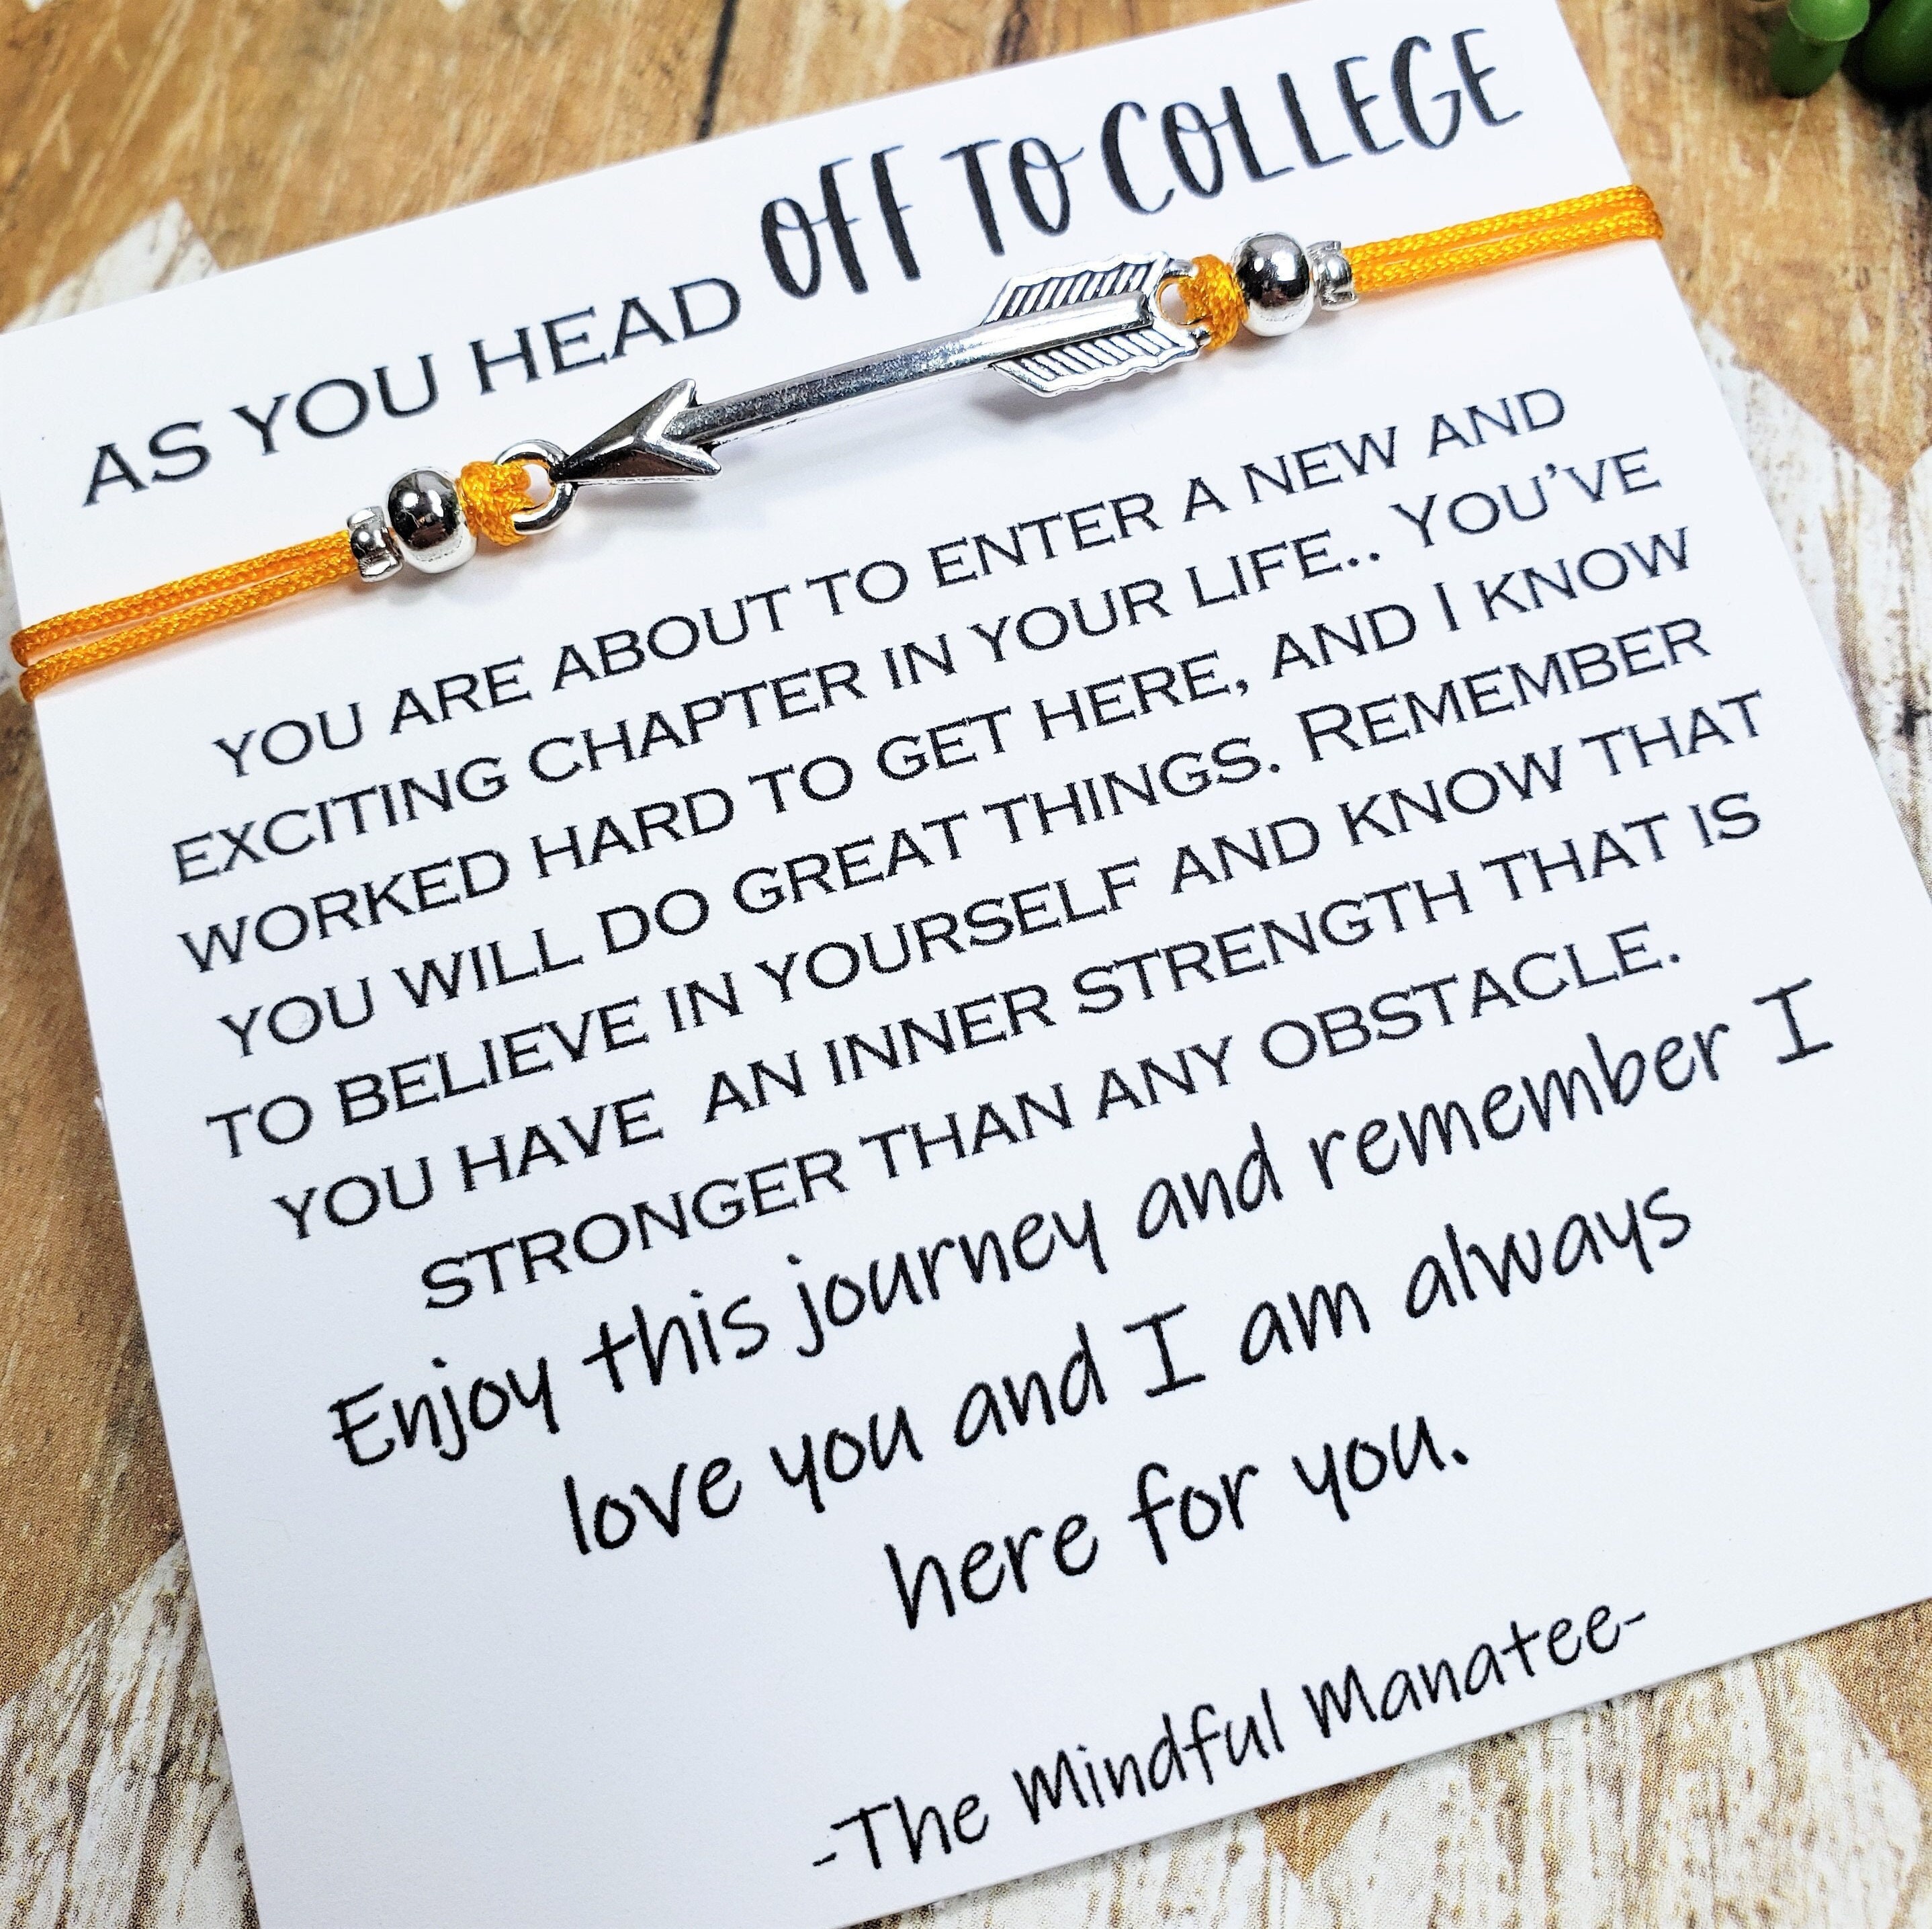 AS YOU HEAD OFF TO COLLEGE
YOU ARE ABOUT TO ENTER A NEW AND
EXCITING CHAPTER IN YOUR LIFE.. YOU'VE
WORKED HARD TO GET HERE, AND I KNOW
YOU WILL DO GREAT THINGS. REMEMBER
TO BELIEVE IN YOURSELF AND KNOW THAT
YOU HAVE AN INNER STRENGTH THAT IS
STRONGER THAN ANY OBSTACLE.
Enjoy this journey and remember I
love you and I am always
here for you.
-The Mindful Manatee-